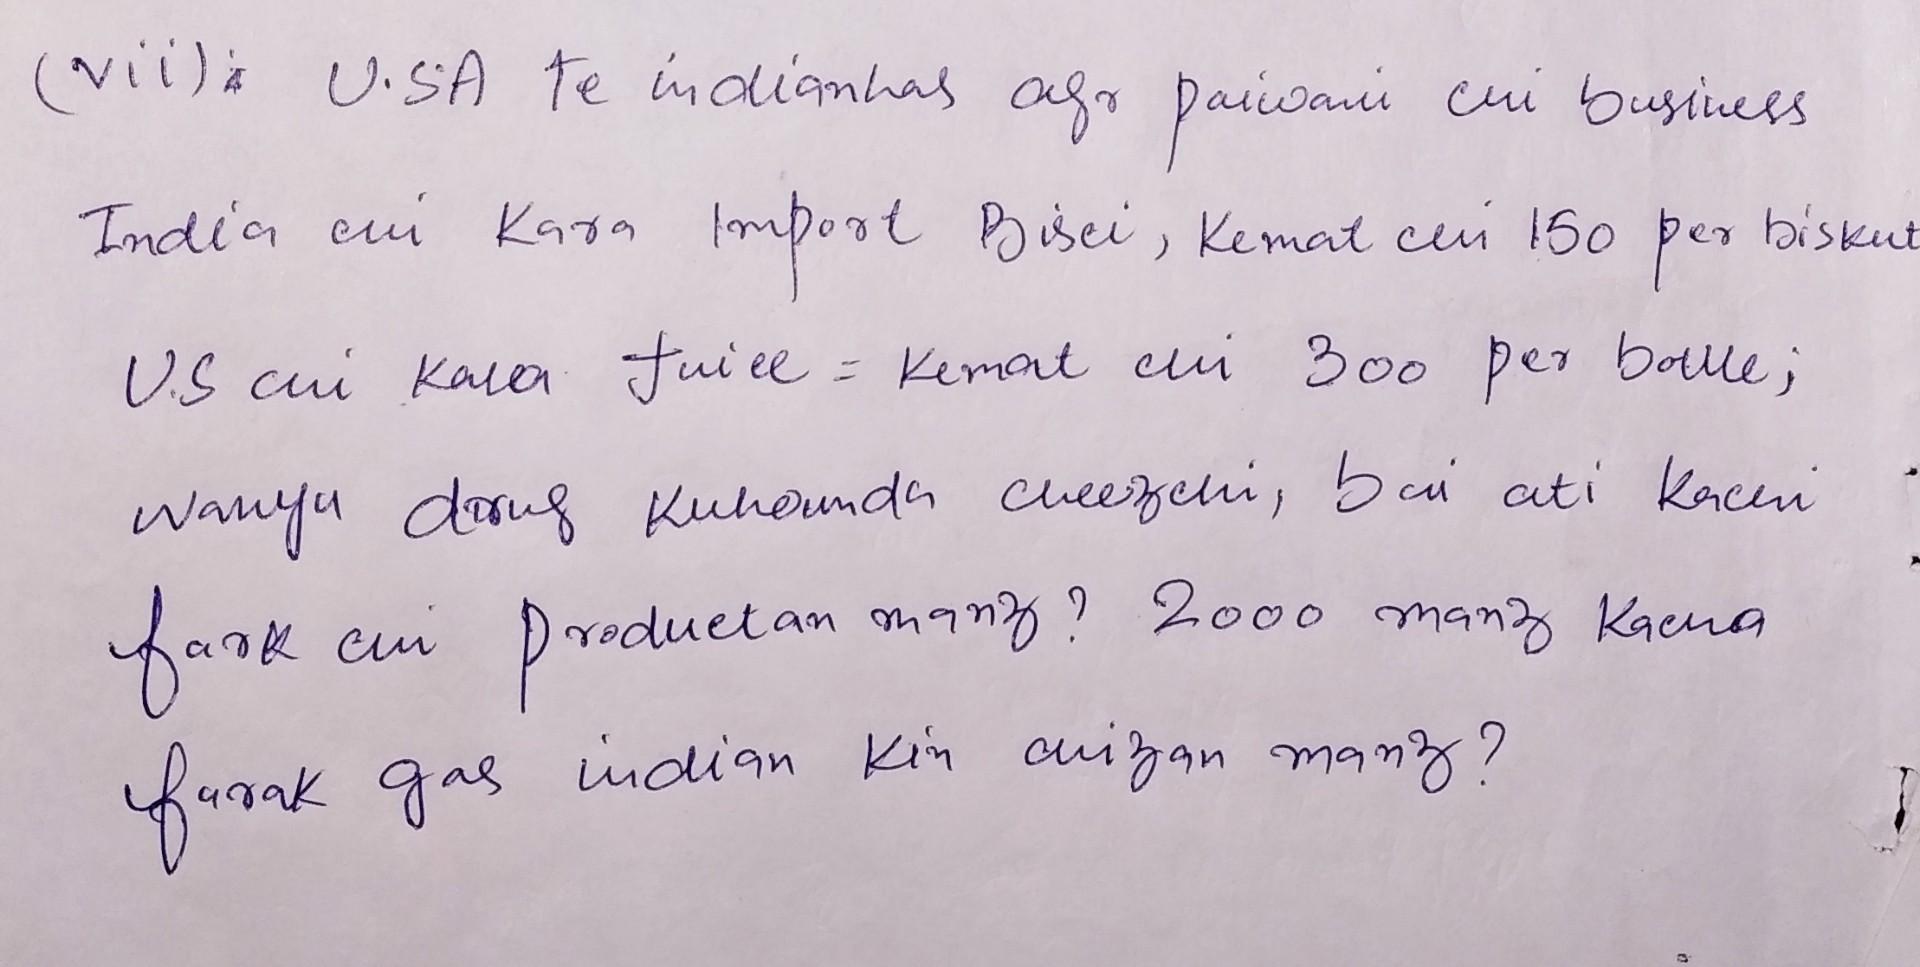 (vii): U.SA te indianhas agr paiwani chi business
India chi Kara Import Bisci, Kemat chi 150 per biskut
U.S chi Kara Juice = Kemat chi 300 per bottle;
wanyu drug Kuhounda cheezchi, bai ati Kachi
fark chi productan manz? 2000 manz Kacha
farak gas indian Kin chizan manz?